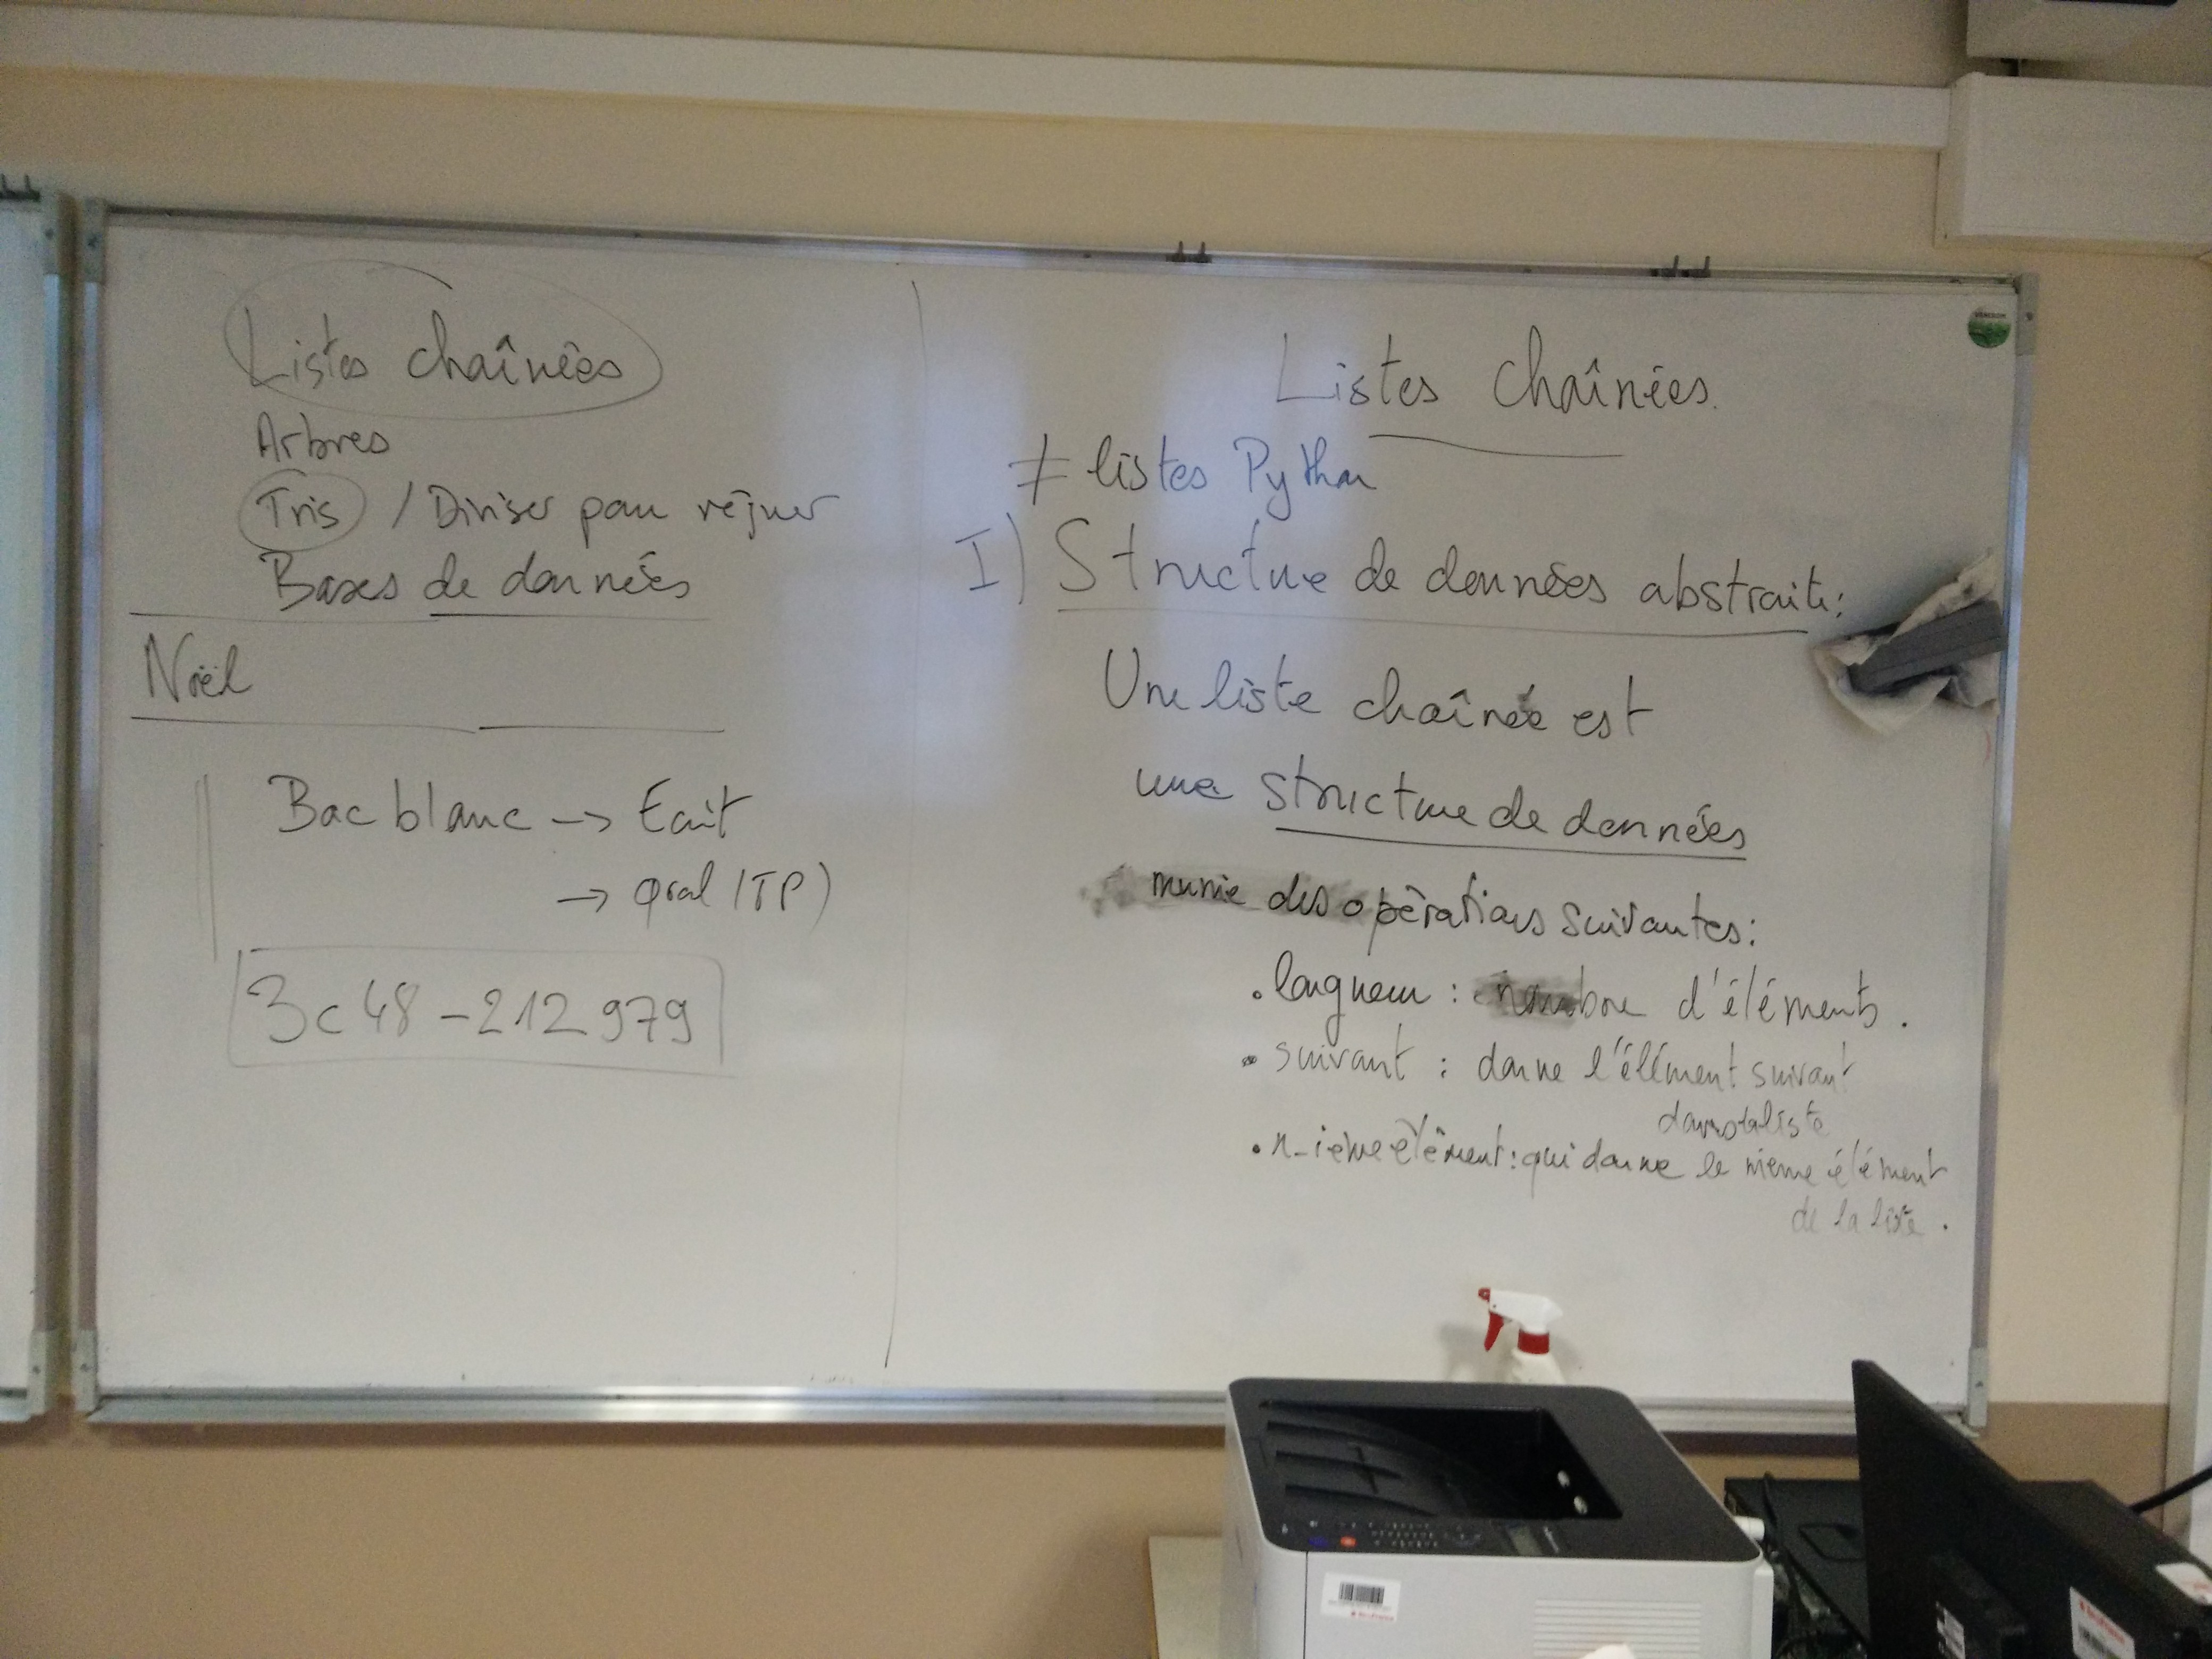 Listes chaînées
Arbres
Tris / Diviser pour régner
Bases de données
Noël
Bac blanc -> Ecrit
-> Oral (TP)
3c48-212979
Listes chaînées.
≠ listes Python
I) Structure de données abstraite:
Une liste chaînée est
une structure de données
munie des opérations suivantes:
. longueur : nombre d'éléments.
• suivant : donne l'élément suivant
dans la liste
• n-ième élément: qui donne le nieme élément
de la liste.